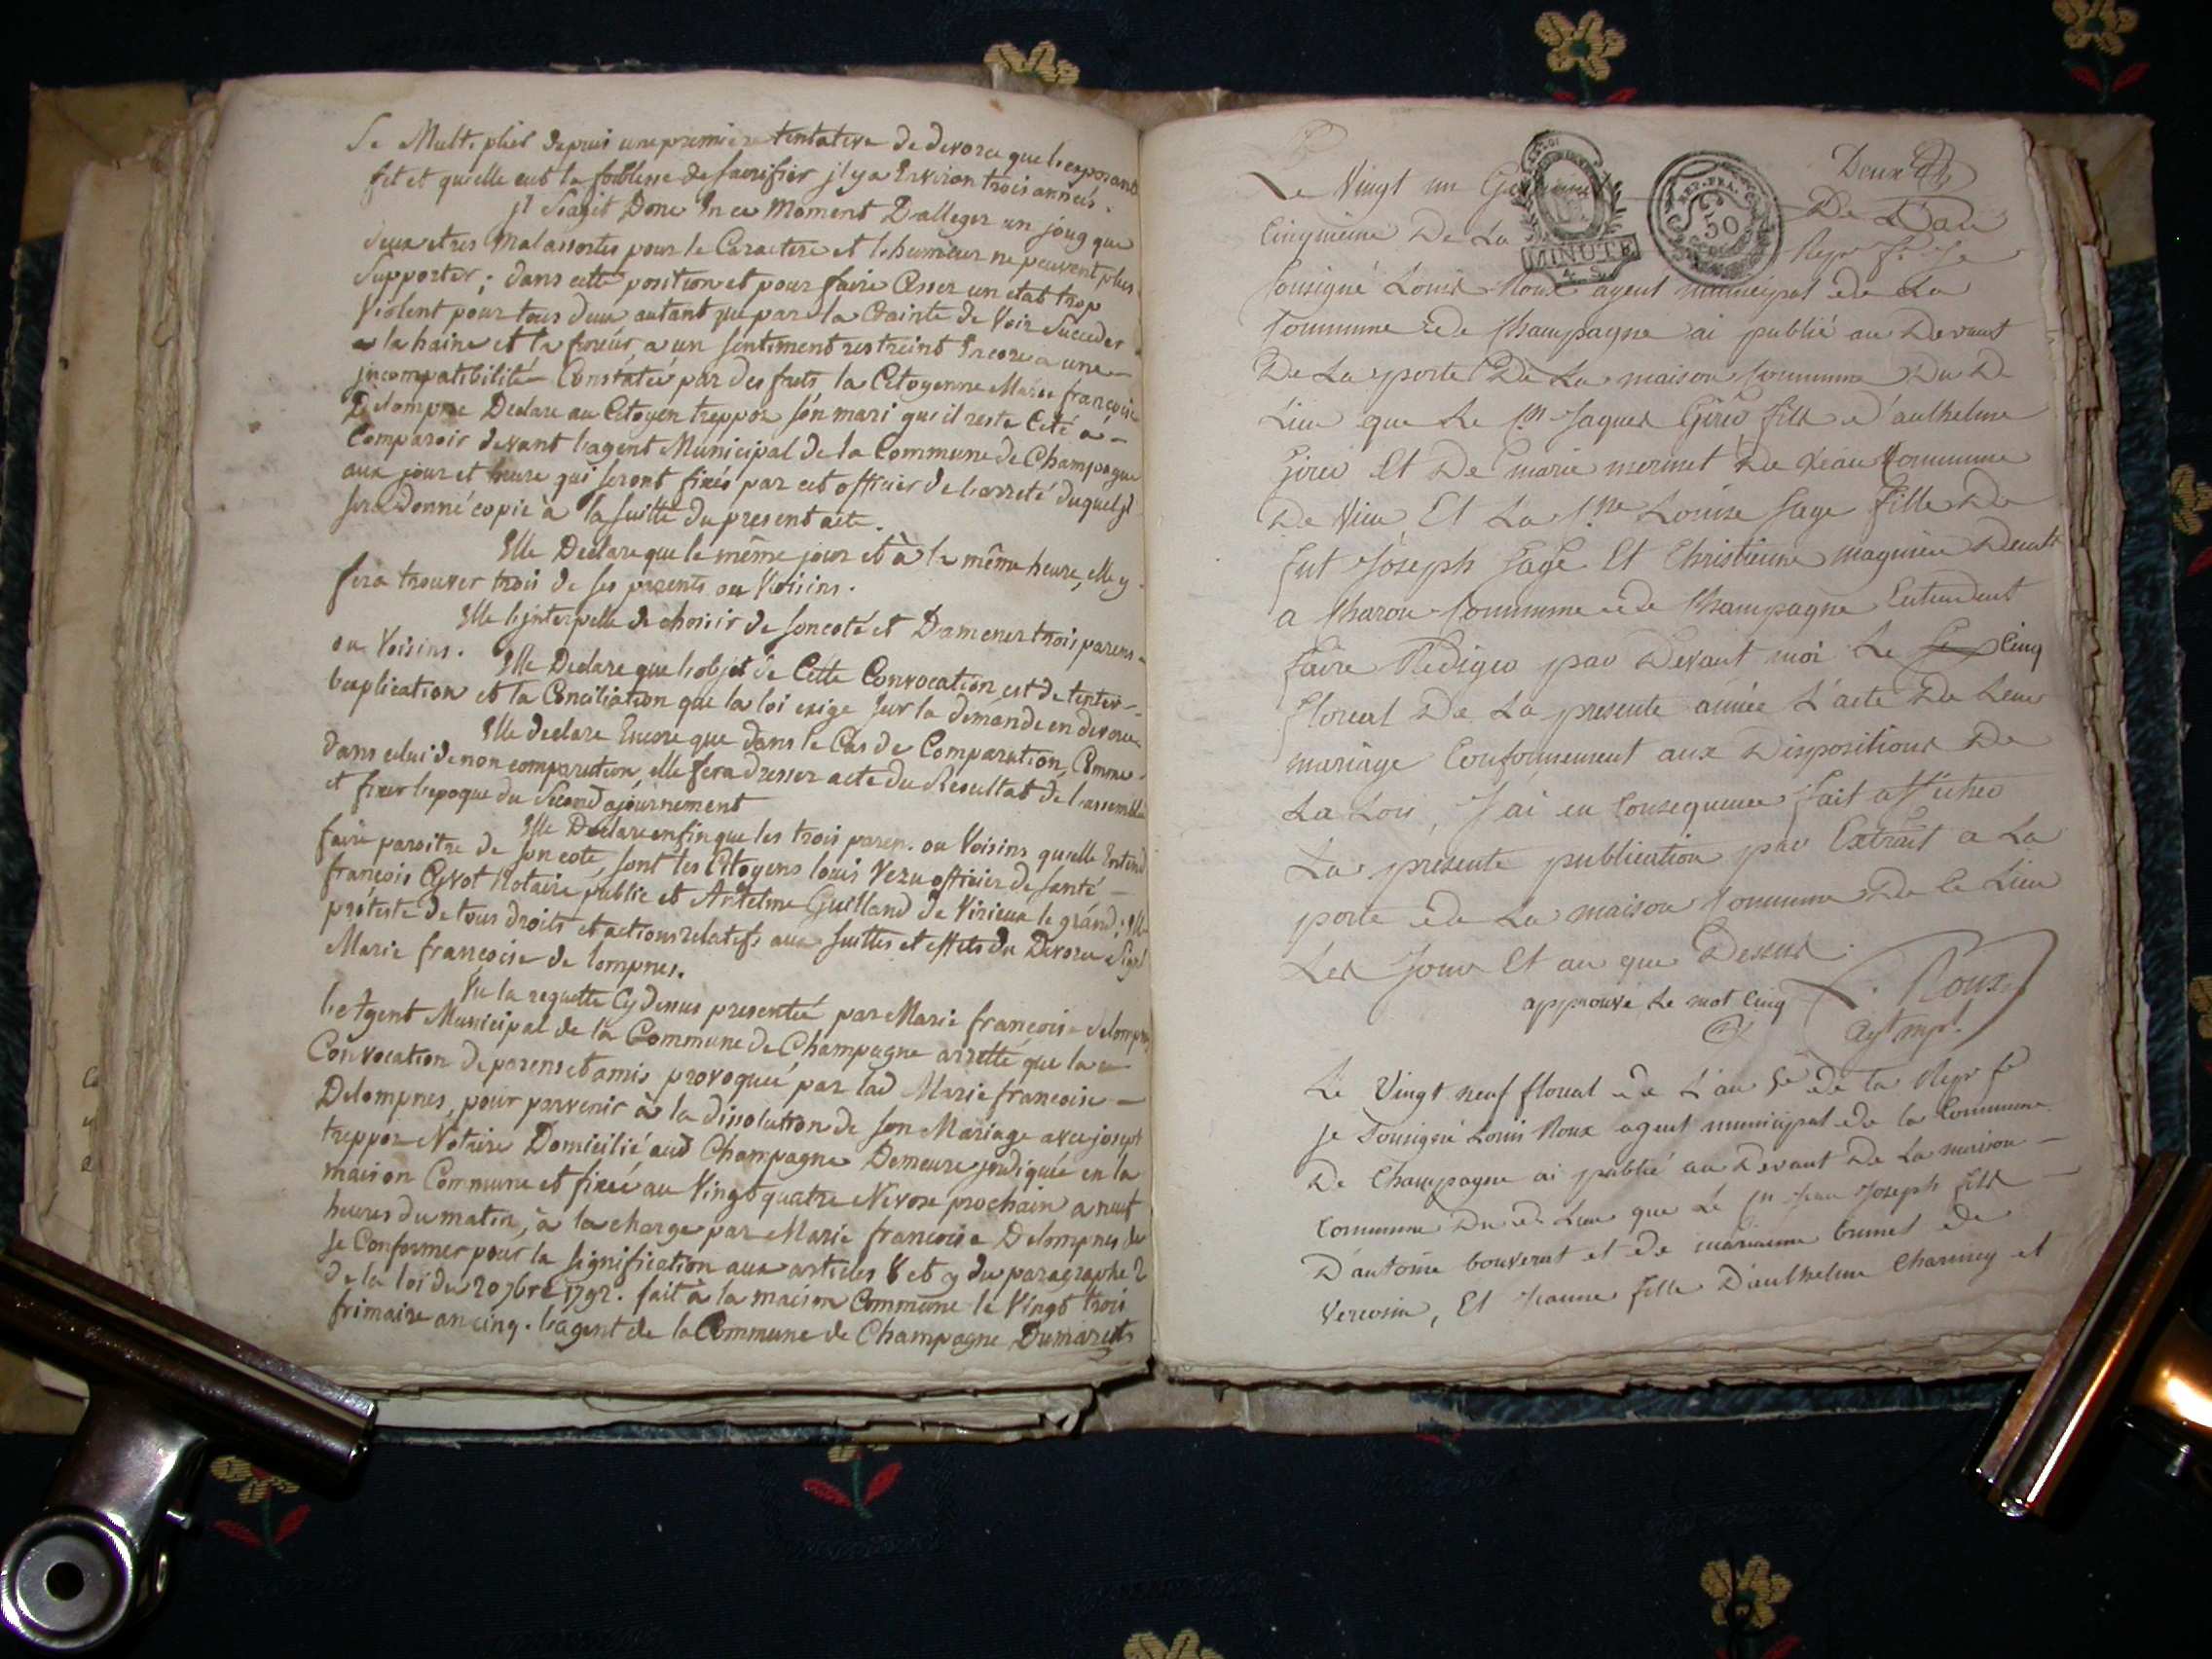 Se Multiplier depuis une premiere tentative de divorce que l'exposante
fit et qu'elle eut la foiblesse de sacrifier jl y a Environ trois années.
jl S'agit Donc En ce Moment D'alleger un joug que
deux etres Mal assortis pour le Caractere et l'humeur ne peuvent plus
Supporter; dans cette position et pour faire Cesser un etat trop
Violent pour tous deux autant que par la Crainte de Voir Succeder
a la haine et la fureur, a un sentiment restreint Encore a une
jncompatibilité Constatée par des faits la Citoyenne Marie françoise
Delompnes Declare au Citoyen treppoz son mari qu'il reste Cité a
Comparoir devant l'agent Municipal de la Commune de Champagne
aux jour et heure qui seront fixés par cet officier de l'arreté duquel jl
sera donné copie à la suitte du present acte.
Elle Declare que le même jour et à la même heure, elle y
fera trouver trois de ses parents ou Voisins.
Elle l'jnterpelle de choisir de son coté et D'amener trois parens
ou Voisins.
Elle Declare que l'objet de Cette Convocation est de tenter
l'explication et la Conciliation que la loi exige sur la demande en divorce
Elle declare Encore que dans le Cas de Comparution, Comme
dans celui de non comparution, elle fera dresser acte du Resultat de l'assemblée
et fixer l'epoque du Second ajournement
Elle Declare enfin que les trois paren. ou Voisins qu'elle Entend
faire paroitre de son coté, sont les Citoyens louis Vezu officier de santé
françois Notaire public et Antelme Guilland de Virieux le grand; Elle
proteste de tous droits et actions relatifs aux suittes et effets du Divorce Signé
Marie françoise de lompnes.
Vu la requette Cy dessus presentée par Marie françoise delompnes
l'Agent Municipal de la Commune de Champagne arrette que la
Convocation de parens et amis provoquée par lad Marie françoise
Delompnes, pour parvenir à la dissolution de son Mariage avec josept
treppoz Notaire Domicilié aud Champagne Demeure jndiquée en la
maison Commune et fixée au Vingt quatre Nivose prochain a neuf
heures du matin, à la charge par Marie françoise Delompnes de
se Conformer pour la signification aux articles 8 et 9 du paragraphe 2
de la loi du 20 7bre 1792. fait à la maison Commune le Vingt trois
frimaire an cinq. l'agent de la Commune de Champagne Dumarest
Deux
Le Vingt un De L'an
Cinquième De La Repe fse Je
MINUTE
REP. FRA.
50
Sousigné Louis Roux agent municipal de La
Commune de Champagne ai publié au Devant
De La porte De La maison Commune Du D
Lieu que Le Cn Jaques Girev fils d'anthelme
Girev Et De marie mermet De Commune
De Vieu Et La Cne Louise Sage fille De
fut Joseph Sage Et Christienne magnien Demt
a Charon Commune de Champagne Entendent
faire Rediger par Devant moi Le Cinq
floreal De La presente année L'acte De Leur
mariage Conformement aux Dispositions De
La Loix, J'ai en Consequence fait afficher
La presente publication par Extrait a La
porte de La maison Commune De Ce Lieu
Les Jour Et an que Dessus.
approuvé Le mot Cinq L. Roux
agt mpl.
Le Vingt neuf floreal de L'an 5e de la Rep fe
Je Sousigné Louis Roux agent municipal de la Commune
De Champagne ai publié au Devant De La maison
Commune Du d. Lieu que Le Cn Jean Joseph fils
D'antoine bouverat et de marianne brunet de
Vercosin, Et Jeanne fille D'anthelme Charvey et